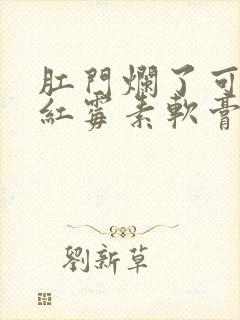 肛門爛了可
紅霉素軟膏
劉新草